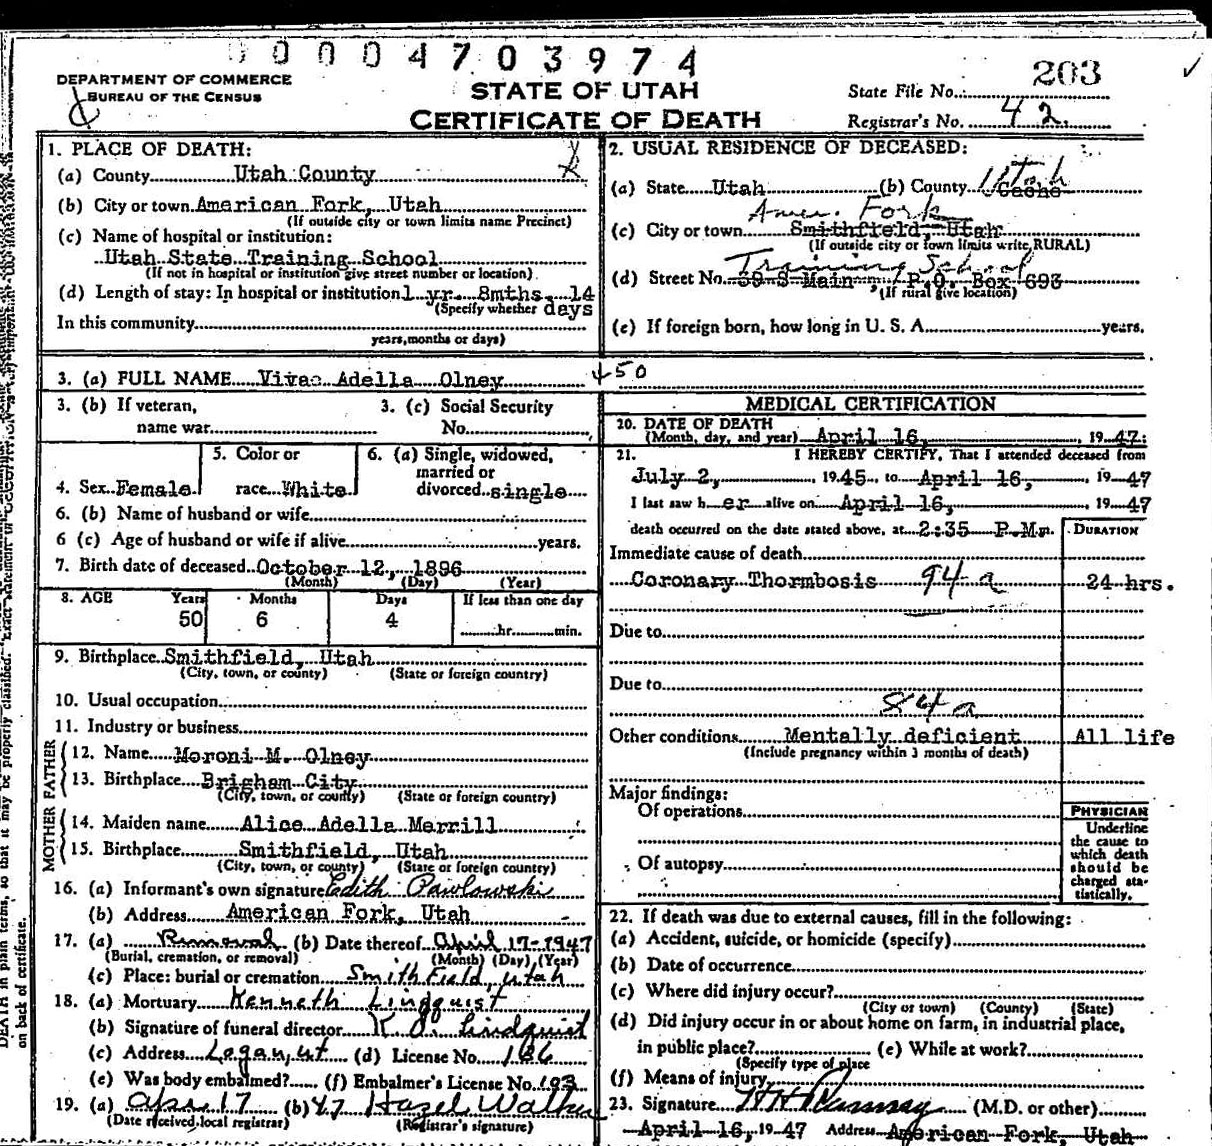 0 0 0 0 4 7 0 3 9 7 4
DEPARTMENT OF COMMERCE
BUREAU OF THE CENSUS
STATE OF UTAH
CERTIFICATE OF DEATH
State File No. 203
Registrar's No. 42
1. PLACE OF DEATH:
(a) County Utah County
(b) City or town American Fork, Utah
(If outside city or town limits name Precinct)
(c) Name of hospital or institution:
Utah State Training School
(If not in hospital or institution give street number or location)
(d) Length of stay: In hospital or institution 1 yr. 8mths. 14
(Specify whether days
In this community
years, months or days)
2. USUAL RESIDENCE OF DECEASED:
(a) State Utah (b) County Utah Cache
Amer. Fork
(c) City or town Smithfield, Utah
(If outside city or town limits write RURAL)
Training School
(d) Street No. 39 S Main P.O. Box 693
(If rural give location)
(e) If foreign born, how long in U. S. A. years.
3. (a) FULL NAME Vivac Adella Olney 450
3. (b) If veteran,
name war
3. (c) Social Security
No.
4. Sex Female
5. Color or
race White
6. (a) Single, widowed,
married or
divorced single
6. (b) Name of husband or wife
6 (c) Age of husband or wife if alive years.
7. Birth date of deceased October 12, 1896
(Month) (Day) (Year)
8. AGE Years Months Days If less than one day
50 6 4 hr. min.
9. Birthplace Smithfield, Utah
(City, town, or county) (State or foreign country)
10. Usual occupation
11. Industry or business
FATHER
12. Name Moroni M. Olney
13. Birthplace Brigham City
(City, town, or county) (State or foreign country)
MOTHER
14. Maiden name Alice Adella Merrill
15. Birthplace Smithfield, Utah
(City, town, or county) (State or foreign country)
16. (a) Informant's own signature Edith Pawlowski
(b) Address American Fork, Utah
17. (a) Removal (b) Date thereof April 17-1947
(Burial, cremation, or removal) (Month) (Day) (Year)
(c) Place: burial or cremation Smithfield, Utah
18. (a) Mortuary Kenneth Lindquist
(b) Signature of funeral director K J. Lindquist
(c) Address Logan, ut (d) License No. 186
(e) Was body embalmed? (f) Embalmer's License No. 193
19. (a) Apr. 17 (b) 47 Hazel Walker
(Date received local registrar) (Registrar's signature)
MEDICAL CERTIFICATION
20. DATE OF DEATH
(Month, day, and year) April 16, 1947
21. I HEREBY CERTIFY, That I attended deceased from
July 2, 1945, to April 16, 1947
I last saw her alive on April 16, 1947
death occurred on the date stated above, at 2:35 P.M m.
DURATION
Immediate cause of death
Coronary Thormbosis 94a 24 hrs.
Due to
Due to
84a
Other conditions Mentally deficient All life
(Include pregnancy within 3 months of death)
Major findings:
Of operations
Of autopsy
PHYSICIAN
Underline
the cause to
which death
should be
charged sta-
tistically.
22. If death was due to external causes, fill in the following:
(a) Accident, suicide, or homicide (specify)
(b) Date of occurrence
(c) Where did injury occur?
(City or town) (County) (State)
(d) Did injury occur in or about home on farm, in industrial place,
in public place? (e) While at work?
(Specify type of place
(f) Means of injury
23. Signature (M.D. or other)
April 16, 1947 Address American Fork, Utah
on back of certificate.
DEATH in plain terms, so that it may be properly classified.